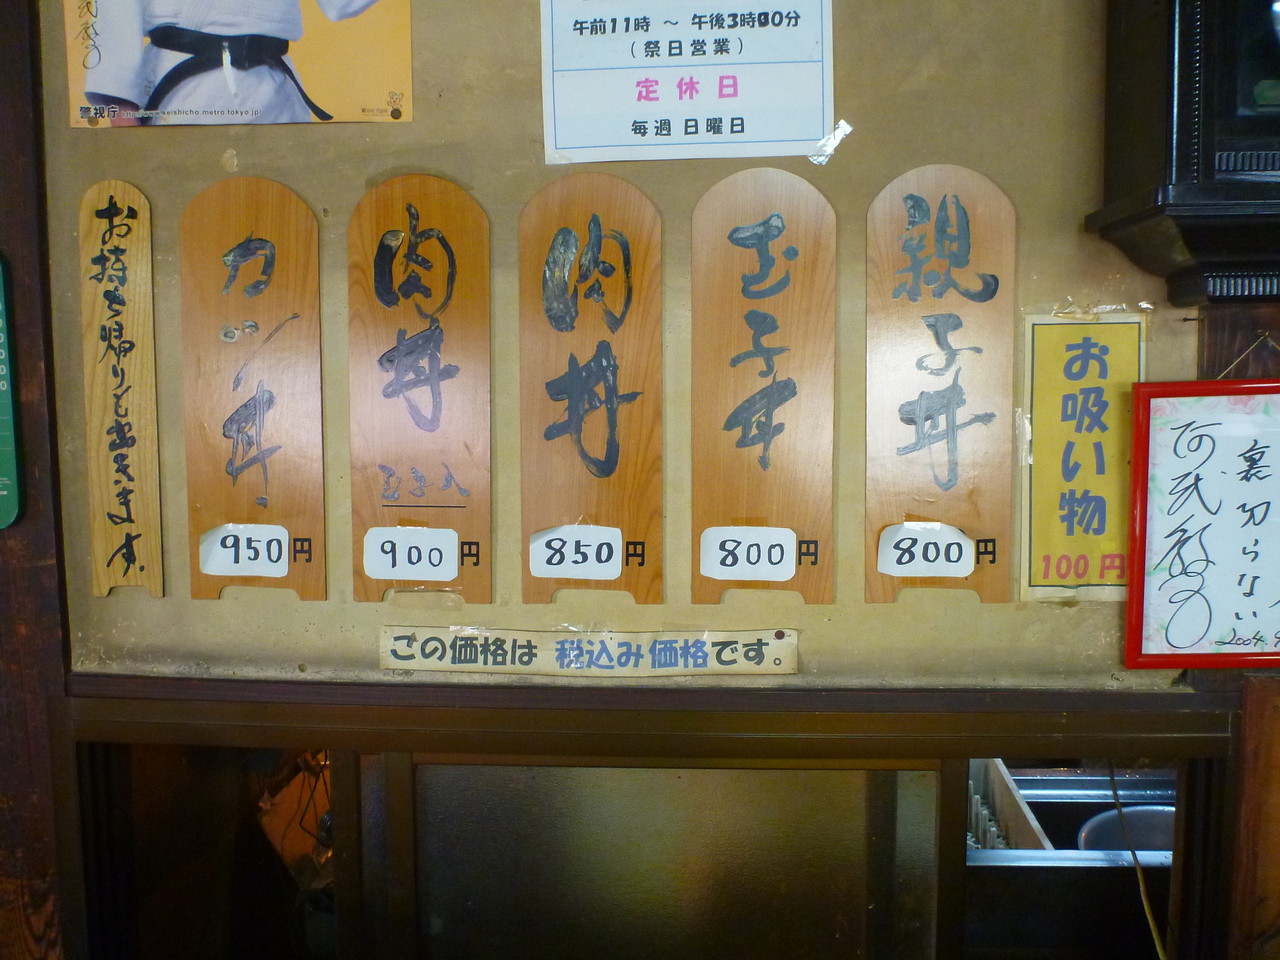 午前11時 ～ 午後3時00分
(祭日営業)
定休日
毎週日曜日
警視庁 http://www.keishicho.metro.tokyo.jp/
親子丼
800円
玉子丼
800円
肉丼
850円
肉丼
玉子入
900円
カツ丼
950円
お持ち帰りも出きます。
お吸い物
100円
この価格は 税込み価格です。
裏切らない
阿武教子
2004.9